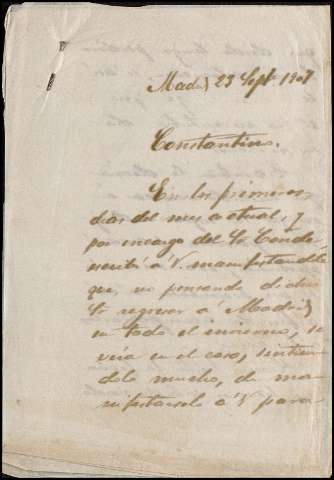 Madrid 23 Sept. 1907
Constantino.
En los primeros
dias del mes actual, y
por encargo del Sr Conde
escribí á V. manifestandole
que, no pensando dicho
Sr regresar á Madrid
en todo el invierno, se
veía en el caso, sintien
dolo mucho, de ma
nifestarselo á V para